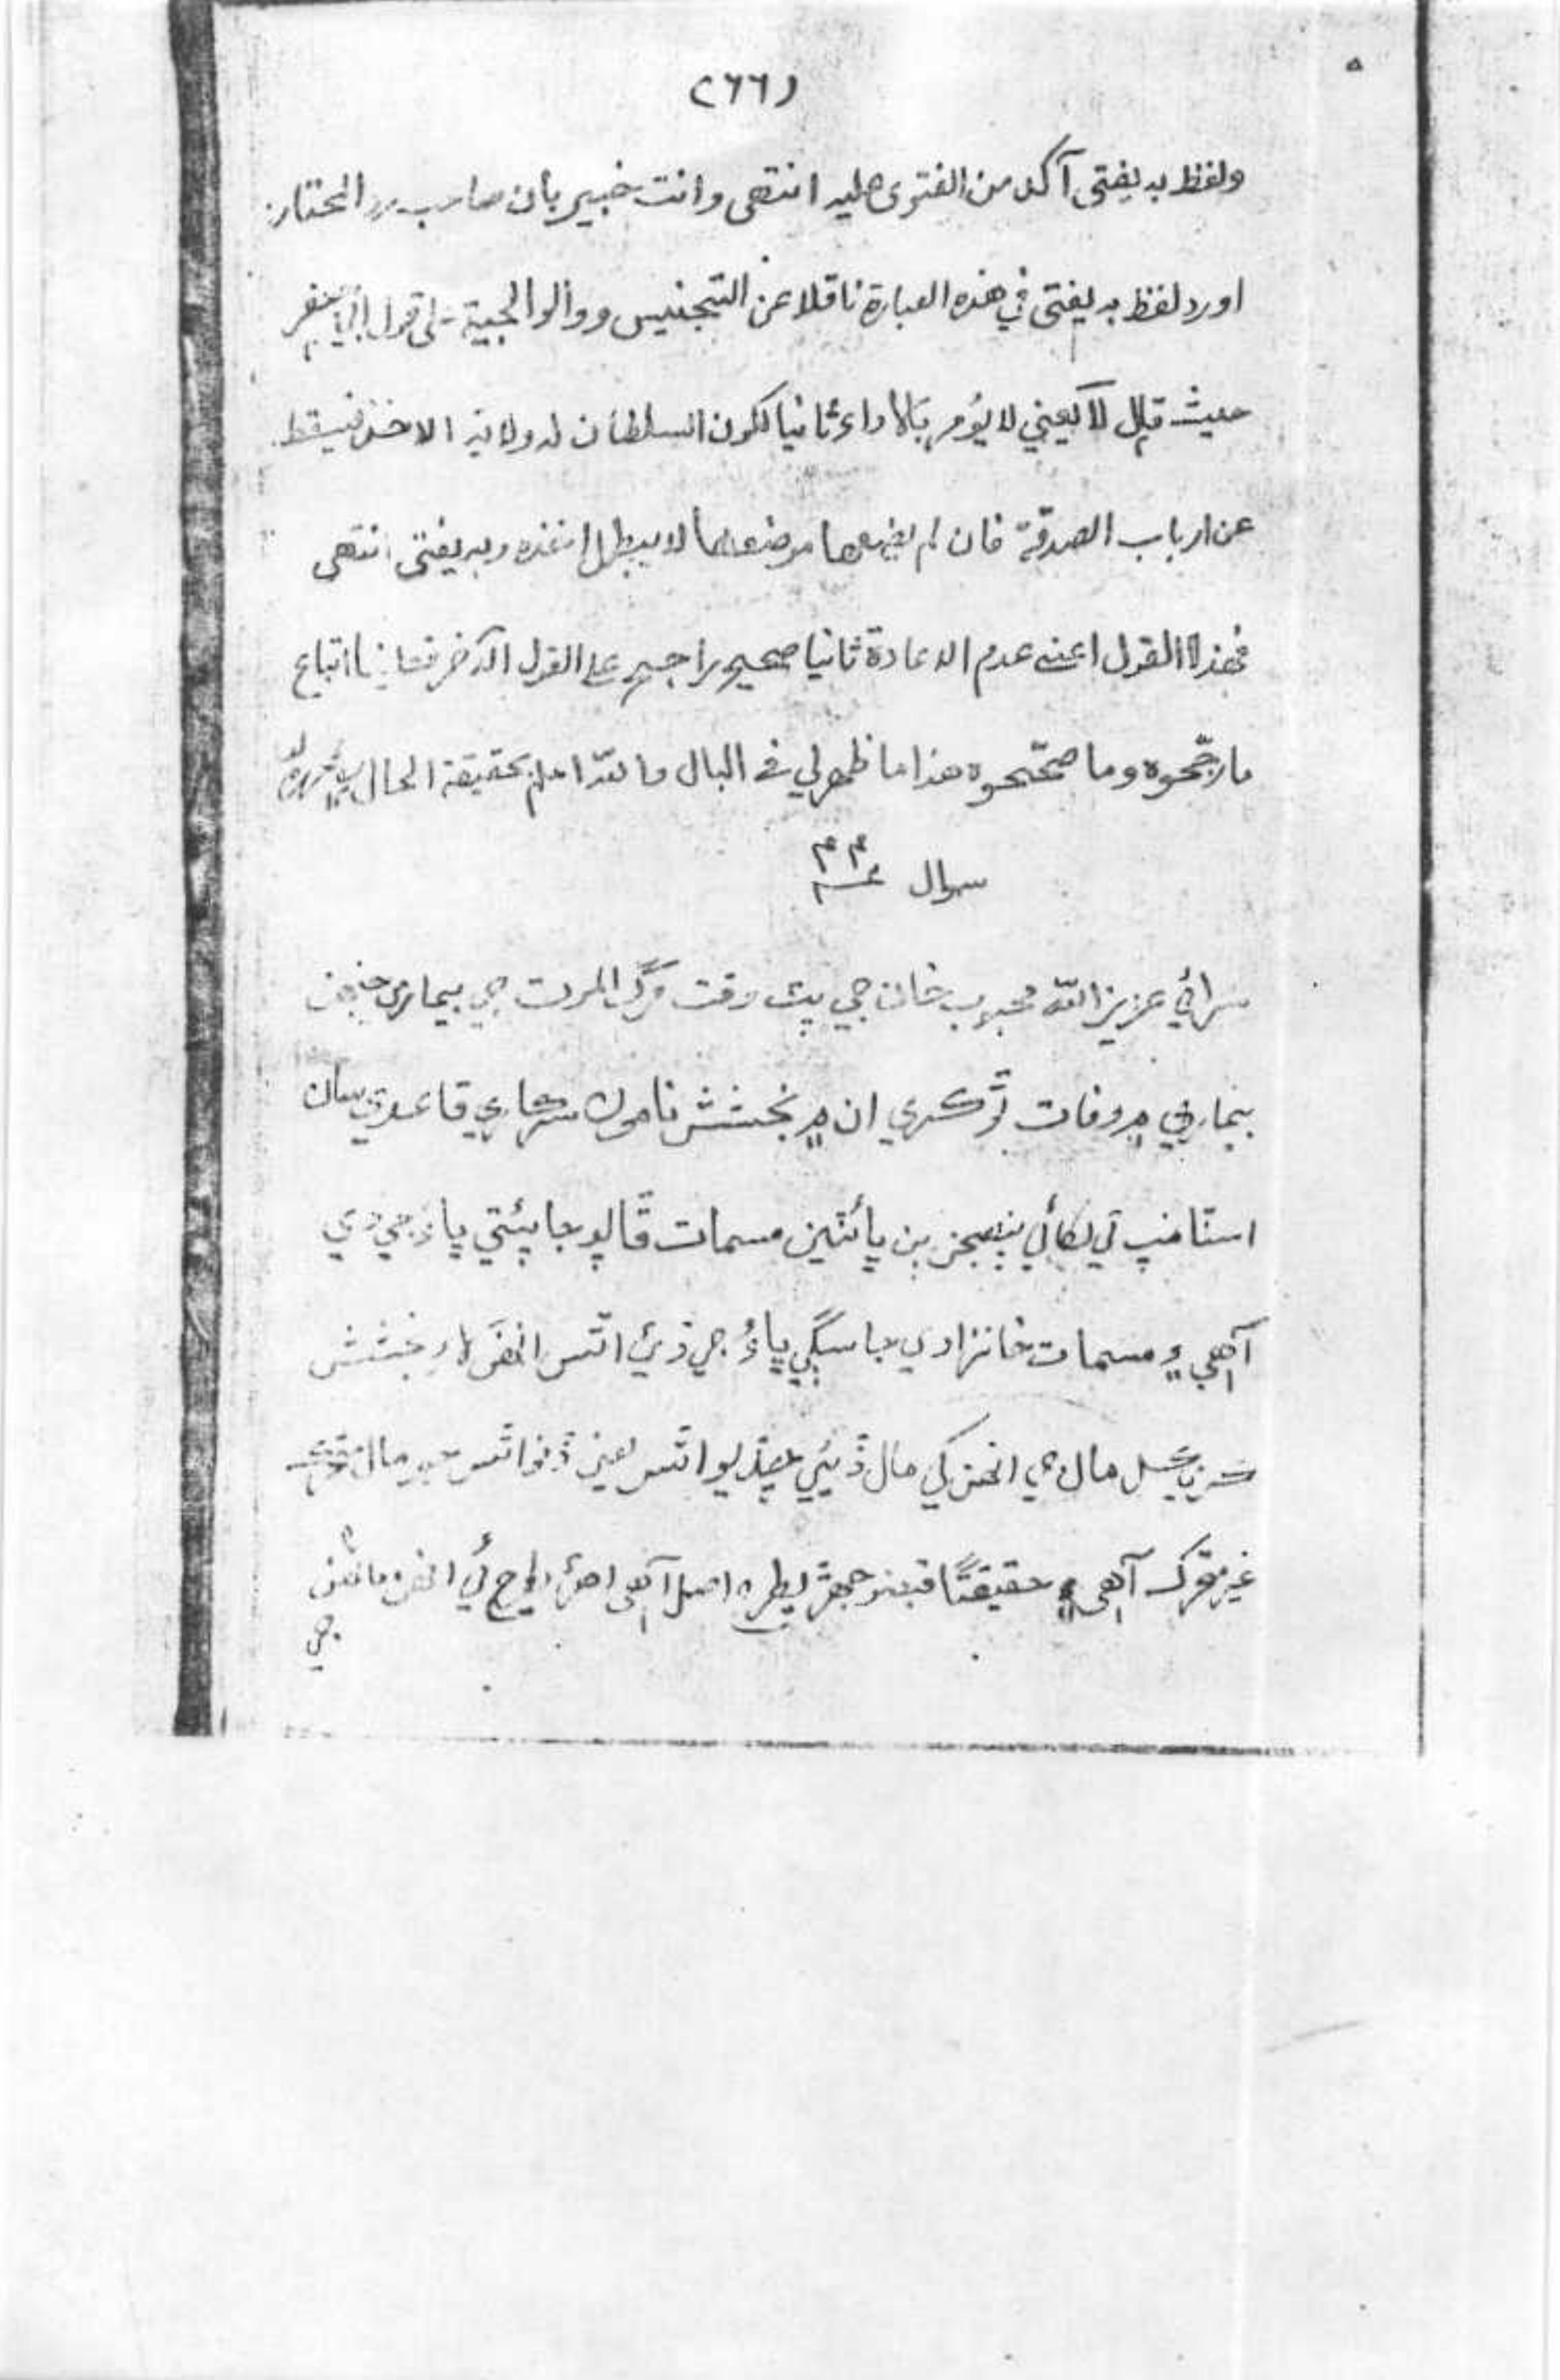 (٢٦٦)
ولفظ به يفتى آكد من الفتوى عليه انتهى وانت خبير بان صاحب رد المحتار
اورد لفظ به يفتى في هذه العبارة ناقلا عن التجنيس ووالوالجية على قول ابي جعفر
حيث قال لا يعني لا يؤمر بالاداء ثانيا لكون السلطان له ولاية الاخذ فيسقط
عن ارباب الصدقة فان لم يضعها موضعها لا يبطل اخذه وبه يفتى انتهى
فهذا القول اعني عدم الاعادة ثانيا صحيح راجح على القول الآخر فعلينا اتباع
ما رجحوه وما صححوه هذا ما ظهر لي في البال والله اعلم بحقيقة الحال
سوال
سرائي عزيز الله محبوب خان جي پٽ وقت مرگ الموت جي بيماري جنهن
بيماري ۾ وفات ٿو ڪري ان ۾ بخشش نامون سرڪاري قاعدي سان
اسٽامپ تي لکائي پنهجن ٻن ڀائٽين مسمات جا پيئتي ڀاءُ جي ڌي
آهي ۽ مسمات خانزادي جا سڳي ڀاءُ جي ڌيءَ اٿس انهن لاءِ بخشش
مال جي انهن کي مال ڏيئي ڇڏيو اٿس يعني مال
غير متحرڪ آهي ۽ حقيقتًا قبضو جهڙي طرح اصل آهي اهڙي طرح ئي انهن
جي